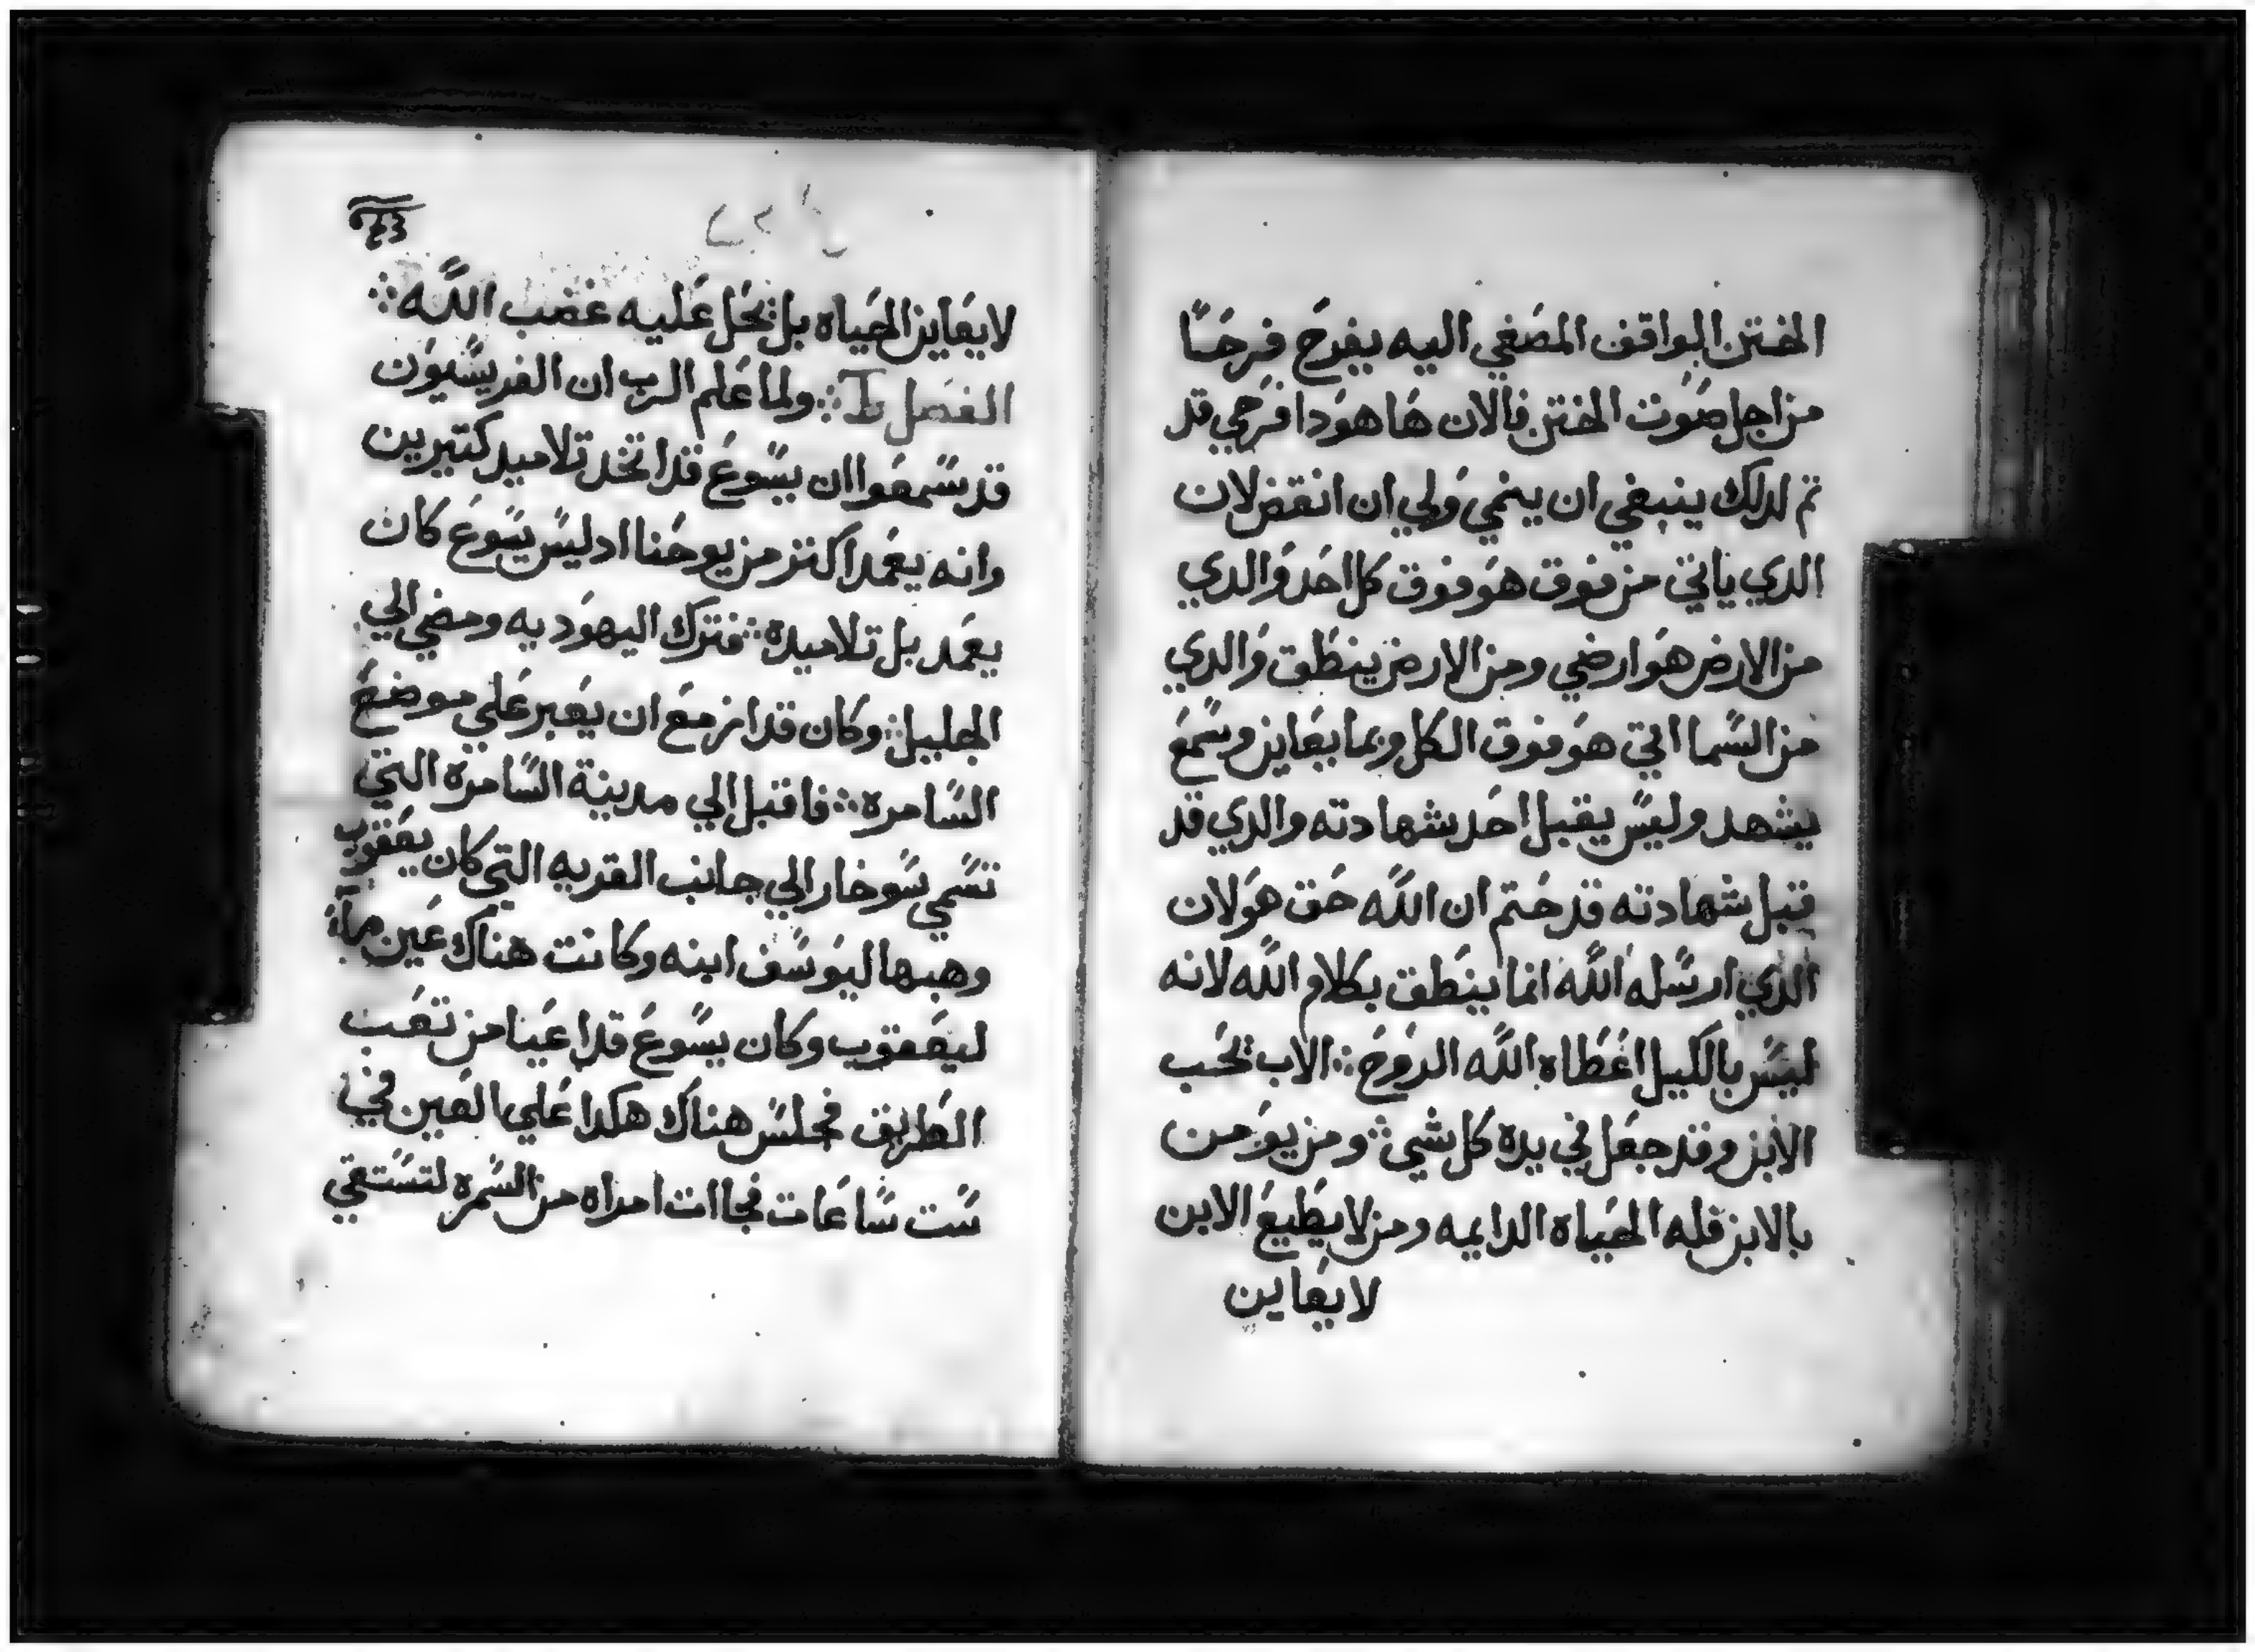 الختن الواقف المصغي اليه يفرح فرحًا
من اجل صوت الختن فالان ها هودا فرحي قد
تم لدلك ينبغي ان ينمي ولي ان انقض لان
الدي ياتي من فوق هو فوق كل احد والدي
من الارض هو ارضي ومن الارض ينطق والدي
من السما اتي هو فوق الكل وبما يعاين وسمع
يشهد وليس يقبل احد شهادته والدي قد
قبل شهادته قد ختم ان الله حق هو لان
الدي ارسله الله انما ينطق بكلام الله لانه
ليس بالكيل اعطاه الله الروح ∴ الاب يحب
الابن وقد جعل في يده كل شي ∴ ومن يومن
بالابن فله الحياه الدايمه ومن لا يطيع الابن
لا يعاين
لا يعاين الحياه بل يحل عليه غضب الله ∴
الفصل ط ∴ ولما علم الرب ان الفريسيون
قد سمعوا ان يسوع قد اتخد تلاميد كتيرين
وانه يعمد اكتر من يوحنا اد ليس يسوع كان
يعمد بل تلاميده ∴ فترك اليهوديه ومضي الي
الجليل ∴ وكان قد ازمع ان يعبر علي موضع
السامره ∴ فاقبل الي مدينة السامره التي
تسمي سوخار الي جانب القريه التي كان يعقوب
وهبها ليوسف ابنه وكانت هناك عين مآ ∴
ليعقوب وكان يسوع قد اعيا من تعب
الطريق فجلس هناك هكدا علي العين في
ست ساعات فجاات امراه من السمره لتستقي